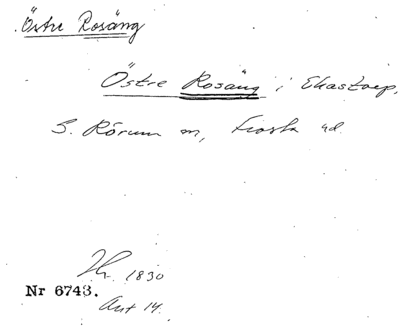 Östre Rosäng
Östre Rosäng i Ekastorp,
S. Rörum sn, Frosta hd.
1830
Nr 6743.
Ant 14.